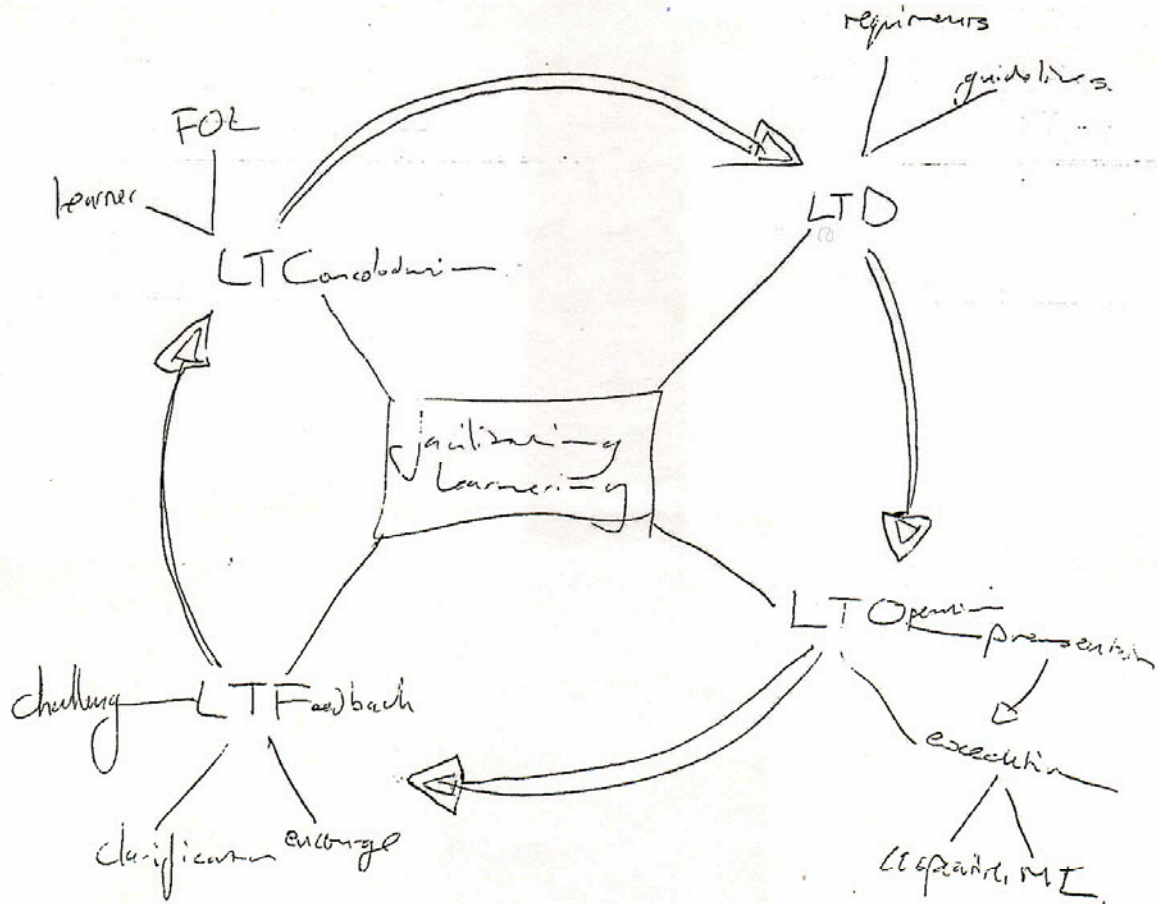 requirements
guidelines
FOL
learner
LTD
LTConsolidation
facilitating
learnering
LTOperation
presentation
LTFeedback
challeng
execution
clarification
encourage
MI